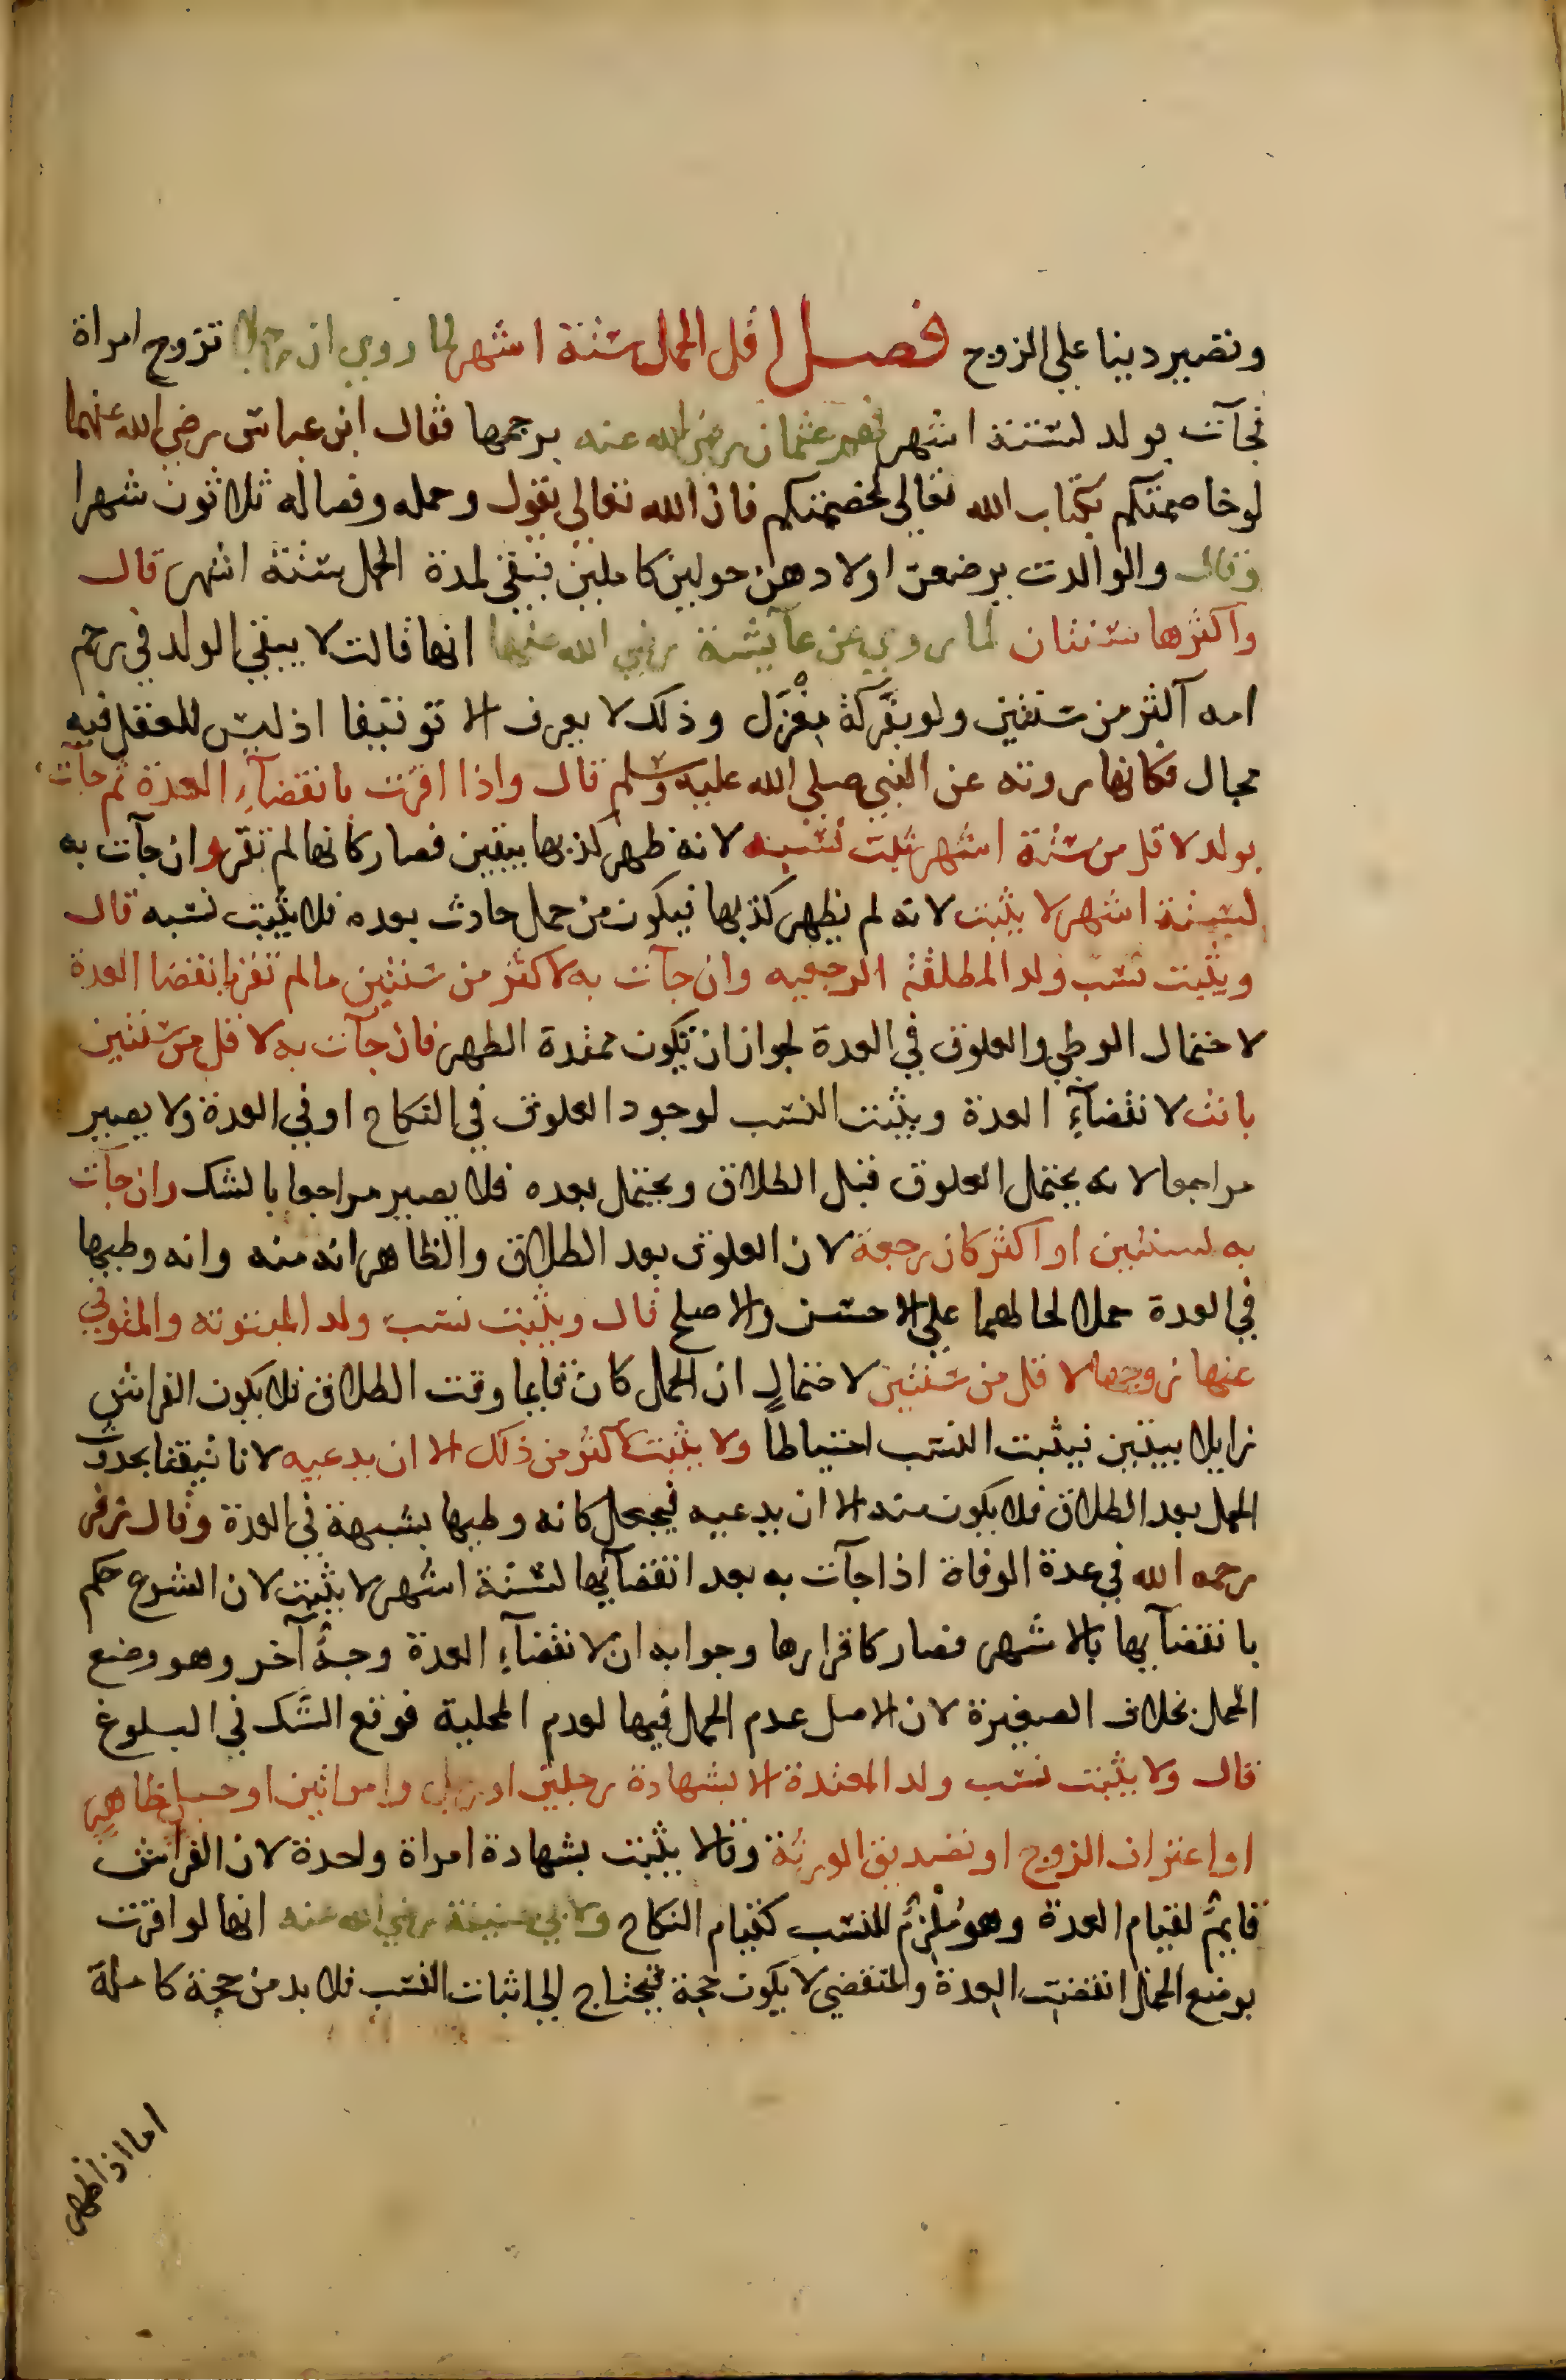 وتصير دينا على الزوج فصل اقل الحمل ستة اشهر لما روي ان رجلا تزوج امراة
فجآت بولد لستة اشهر فهم عثمان رضي الله عنه برجمها فقال ابن عباس رضي الله عنهما
لو خاصمتكم بكتاب الله تعالى لخصمتكم فان الله تعالى يقول وحمله وفصاله ثلاثون شهرا
وقال والوالدت يرضعن اولادهن حولين كاملين فبقي لمدة الحمل ستة اشهر قال
واكثرها سنتان لما روي عن عآيشة رضي الله عنها انها قالت لا يبقي الولد في رحم
امه آكثر من سنتين ولو بفركة مغزل وذلك لا يعرف الا توقيفا اذ ليس للعقل فيه
مجال فكانها روته عن النبي صلي الله عليه وسلم قال واذا اقرت بانقضآء العدة ثم جآت
بولد لاقل من ستة اشهر ثبت نسبه لانه ظهر كذبها بيقين فصار كانها لم تقر وان جآت به
لستة اشهر لا يثبت لانه لم يظهر كذبها فيكون من حمل حادث بعده فلا يثبت نسبه قال
ويثبت نسب ولد المطلقة الرجعيه وان جآت به لاكثر من سنتين مالم تقر بانقضا العدة
لاحتمال الوطي والعلوق في العدة لجواز ان تكون ممتدة الطهر فان جآت به لاقل من سنتين
بانت لانقضآء العدة ويثبت النسب لوجود العلوق في النكاح او في العدة ولا يصير
مراجعا لانه يحتمل العلوق قبل الطلاق ويحتمل بعده فلا يصير مراجعا بالشك وان جآت
به لسنتين او اكثر كان رجعة لان العلوق بعد الطلاق والظاهر انه منه وانه وطيها
في العدة حملا لحالهما علي الاحسن والاصلح قال ويثبت نسب ولد المبتوته والمتوفي
عنها زوجها لاقل من سنتين لاحتمال ان الحمل كان قايما وقت الطلاق فلا يكون الفراش
زايلا بيقين فيثبت النسب احتياطا ولا يثبت لآكثر من ذلك الا ان يدعيه لانا تيقنا بحدوث
الحمل بعد الطلاق فلا يكون منه الا ان يدعيه فيجعل كانه وطيها بشبهة في العدة وقال زفر
رحمه الله في عدة الوفاة اذا جآت به بعد انقضآيها لستة اشهر لا يثبت لان الشرع حكم
بانقضآيها بالاشهر فصار كاقرارها وجوابه ان لانقضآء العدة وجه آخر وهو وضع
الحمل بخلاف الصغيرة لان الاصل عدم الحمل فيها لعدم المحلية فوقع الشك في البلوغ
قال ولا يثبت نسب ولد المعتدة الا بشهادة رجلين او رجل وامراتين او حبل ظاهر
او اعتراف الزوج او تصديق الورثة وقالا يثبت بشهادة امراة واحدة لان الفراش
قايم لقيام العدة وهو ملزم للنسب كقيام النكاح ولابي حنيفة رضي الله عنه انها لو اقرت
بوضع الحمل انقضت العدة والمنقضي لا يكون حجة فيحتاج الي اثبات النسب فلا بد من حجة كاملة
اما اذا ظهر